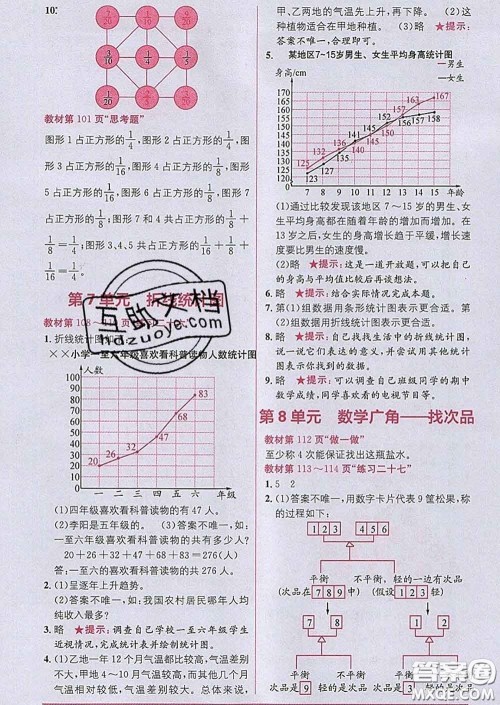 10.
3/20 1/10 9/20
3/10 1/4
1/20 2/5 7/20
教材第 101 页“思考题”
图形 1 占正方形的1/4,图形 2 占正方形的1/4,图
形 3 占正方形的1/16,图形 4 占正方形的1/8,图形
图形 7 和 4 共占正方形的1/8+
1/8=1/4;图形 3、4、5 共占正方形的1/16+1/8+
1/16=1/4。
第 7 单元 折线统计图
1. 折线统计图
××小学一至六年级喜欢看科普读物人数统计图
人数
90
80
70
60
50
40
30
20
10
0
20 26 32 47 68 83
一 二 三 四 五 六 年级
(1)四年级喜欢看科普读物的有 47 人。
(2)李阳是五年级的。 (3)答案不唯一,如:一
至六年级喜欢看科普读物的共有多少人?
20+26+32+47+68+83=276(人)
答:一至六的喜欢看科普读物的共有 276 人。
2. (1)呈逐年上升趋势。
(2)答案不唯一,如:我国农村居民哪年人均
纯收入最多?
3. 略 ★提示:调查自己学校一至六年级学生
近视情况,完成统计表并绘制统计图。
4. (1)乙地一年 12 个月气温都比较高,气温差别
不大,甲地 4～10 月气温比较高,而其他几个月
气温相对较低,气温差别较大。总体来说,
甲、乙两地的气温先上升,再下降。 (2)这
种植物适合在甲地种植。 (3)略 ★提示:
答案不唯一,合理即可。
5. 某地区 7～15 岁男生、女生平均身高统计图
身高/cm
男生
女生
170
165
160
155
150
145
140
135
130
125
120
0
7 8 9 10 11 12 13 14 15 年龄
(1)通过比较发现该地区 7～15 岁的男生、女
生平均身高都在随着年龄的增加而增加。在
13 岁以后,女生的身高增长趋于平缓,增长速度要比
男生的速度慢。
(2)略 ★提示:这是一道开放题,把自己的
身高与平均值比较后再谈感想。
6. 略 ★提示:结合实际情况完成本题。
7. 第(1)组数据用条形统计图表示更合适。第
(2)组数据用折线统计图表示更合适。
8. 略 ★提示:自己找生活中的折线统计图,
说出从中了解到的信息,并尝试用其他统计
图表示你找到的数据。
9. 略 ★提示:可以调查自己班级同学的期中
数学成绩,同学喜欢看的电视节目等。
第 8 单元 数学广角——找次品
教材第 112 页“做一做”
至少称 4 次能保证找出这瓶盐水。
教材第 113～114 页“练习二十七”
1. 5 2
2. (1)答案不唯一,用数字卡片代表 9 筐松果,称
的过程如下:
1 2 3 4 5 6
平衡 不平衡,轻的一边有次品
(次品在 7 8 9 中) (假设 1 2 3 轻)
7 8 1 2
平衡 不平衡 平衡 不平衡
次品是 9 轻的是次品 次品是 3 轻的是次品
互助文档
hdzuoye.com
答案圈
MXQE.COM